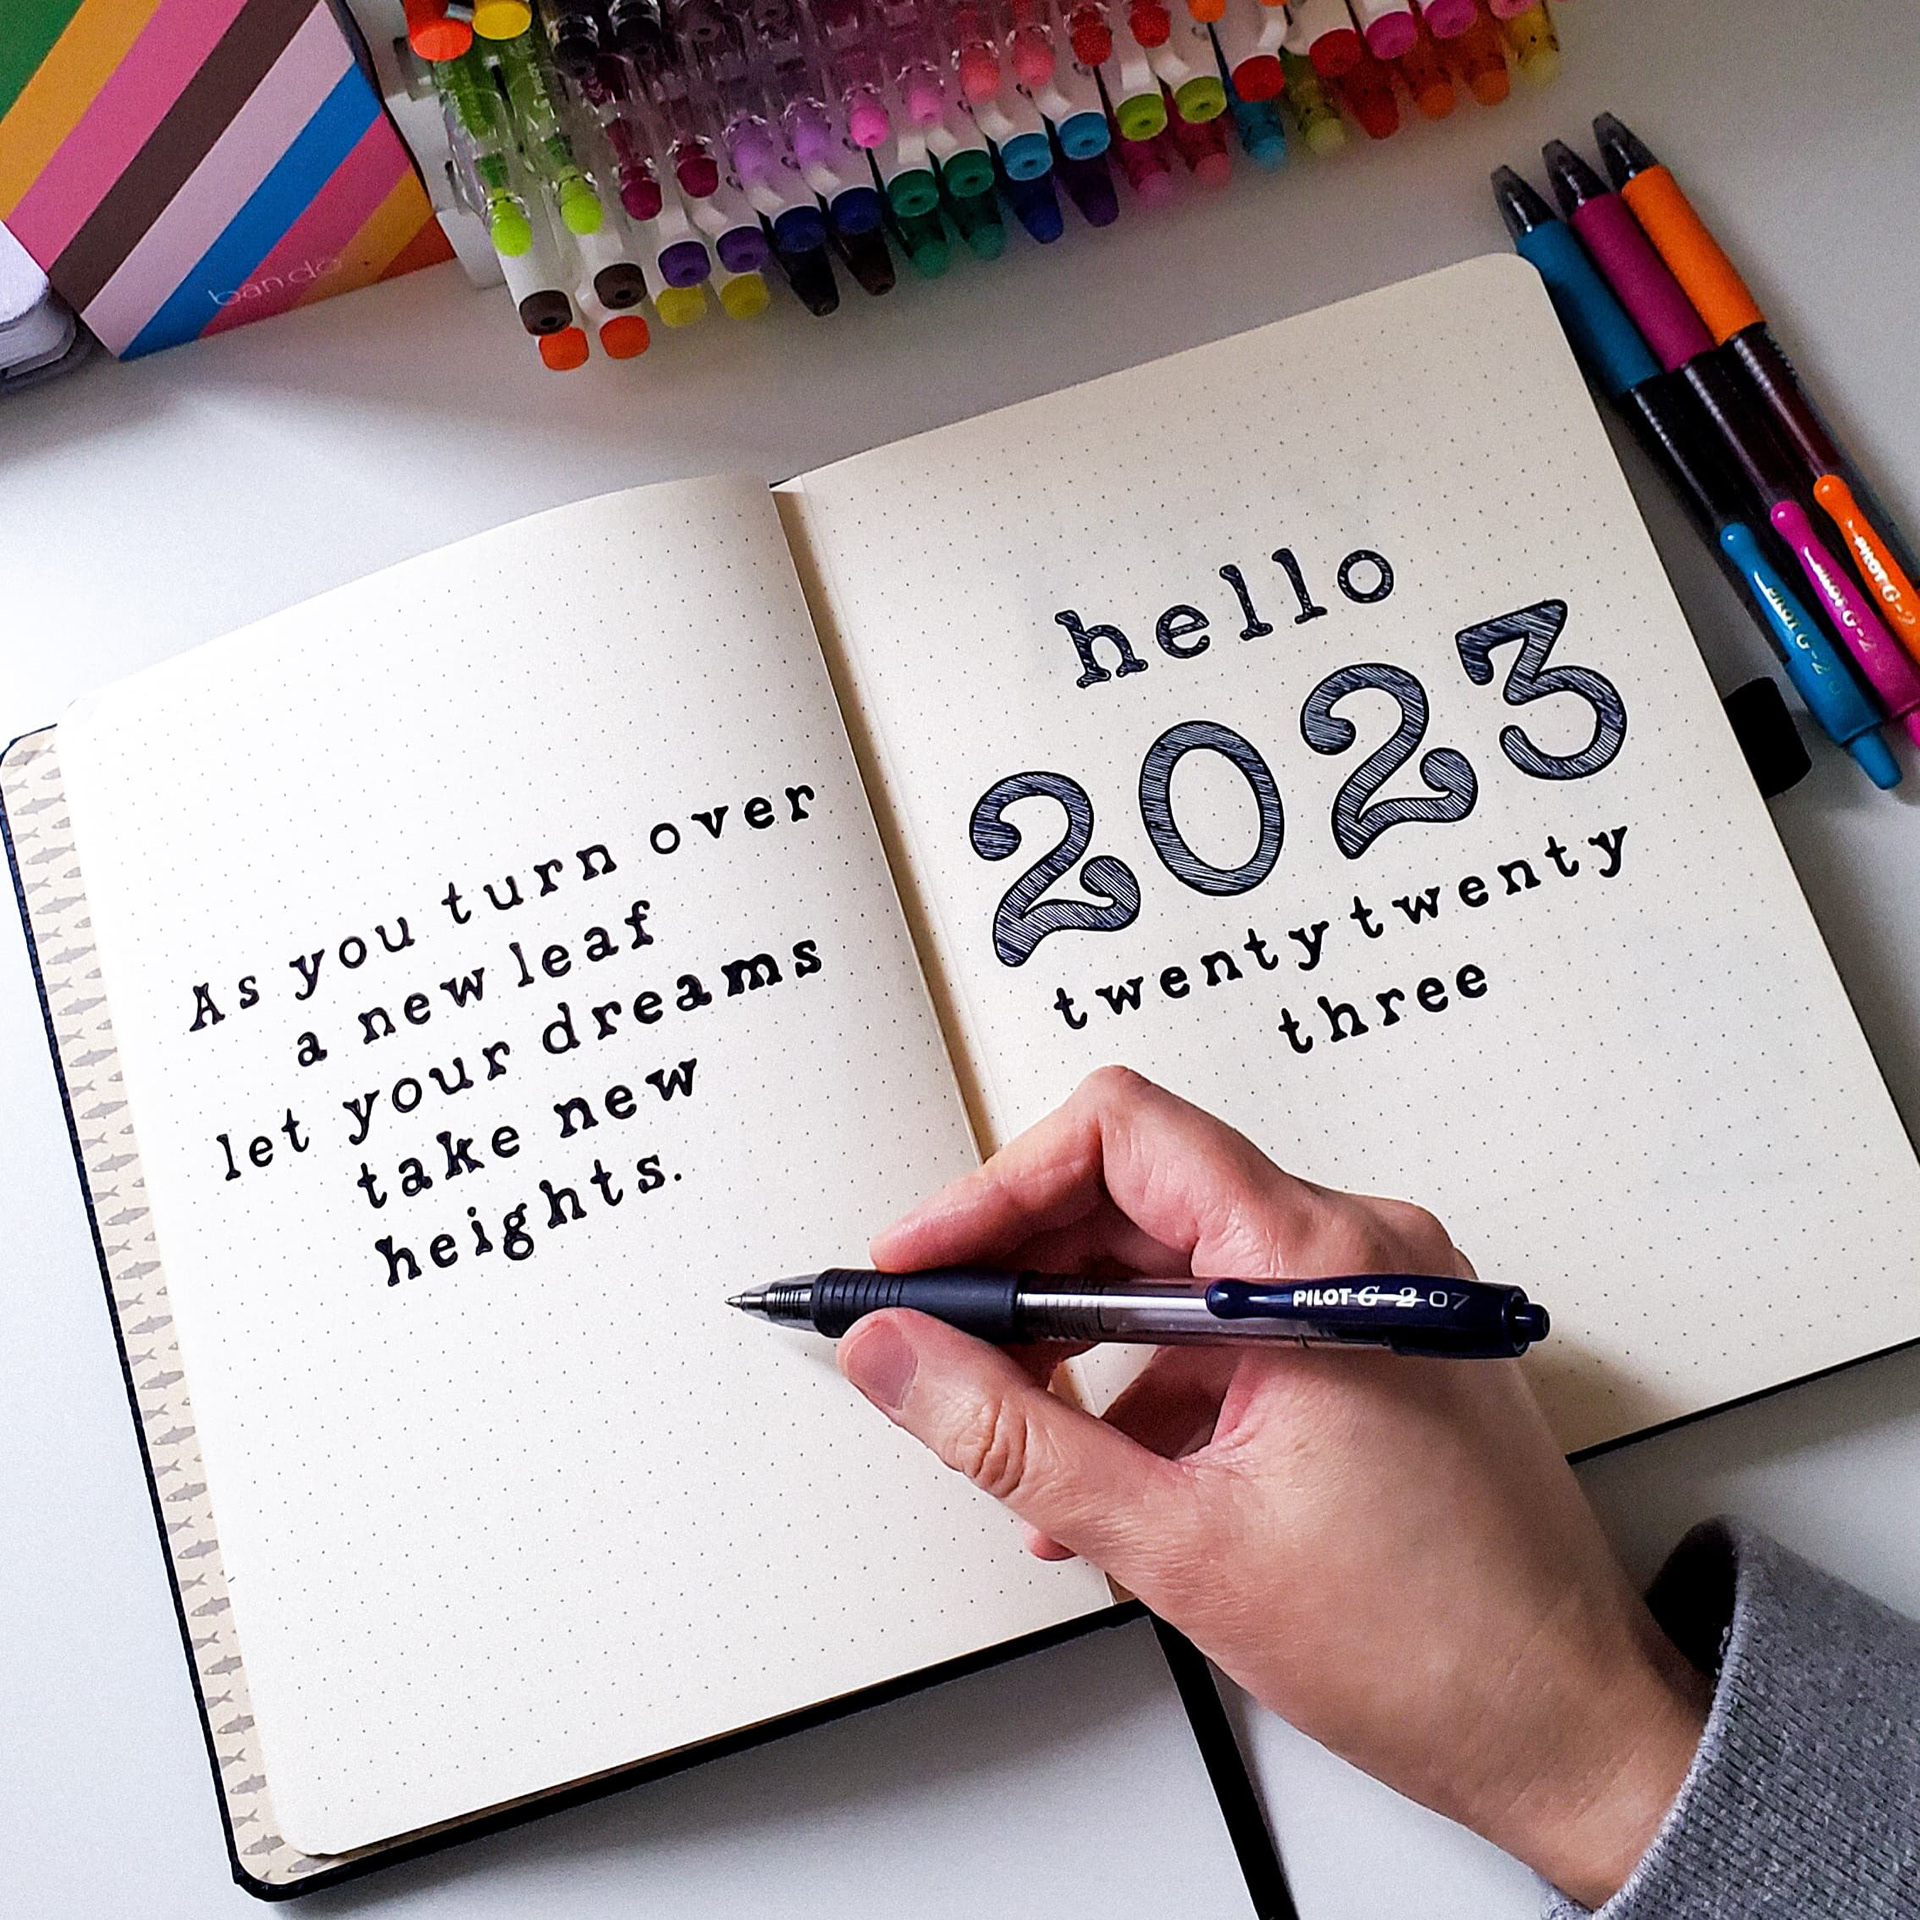 ban.do
As you turn over
a new leaf
let your dreams
take new
heights.
hello
2023
twenty twenty
three
PILOT G-2 07
PILOT G-2
PILOT G-2
PILOT G-2